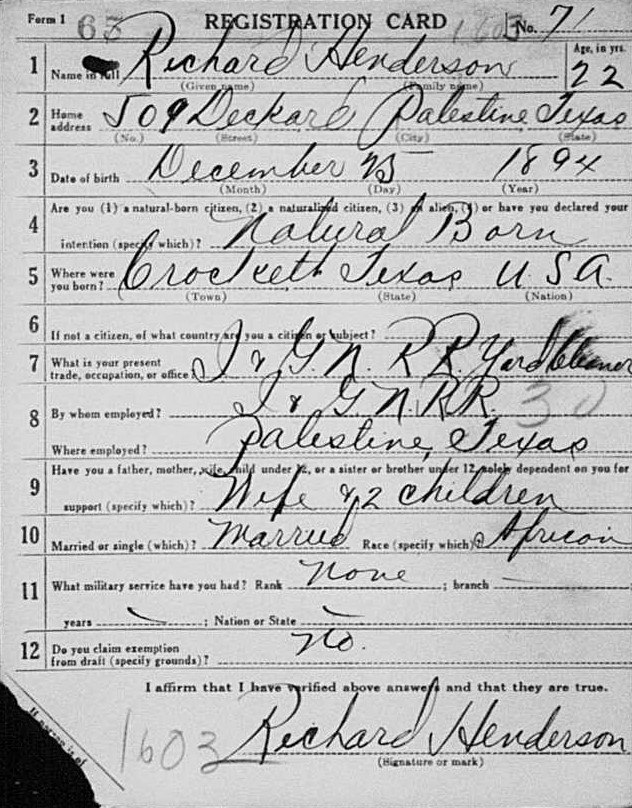 Form 1 63 REGISTRATION CARD 1603 No. 71
1 Name in full Richard Henderson Age, in yrs. 22
(Given name) (Family name)
2 Home address 509 Deckard Palestine Texas
(No.) (Street) (City) (State)
3 Date of birth December 25 1894
(Month) (Day) (Year)
4 Are you (1) a natural-born citizen, (2) a naturalized citizen, (3) an alien, (4) or have you declared your
intention (specify which)? Natural Born
5 Where were you born? Crockett Texas U S A.
(Town) (State) (Nation)
6 If not a citizen, of what country are you a citizen or subject?
7 What is your present trade, occupation, or office? I & G. N. R R. Yard Cleaner
8 By whom employed? I & G. N. RR. 30
Where employed? Palestine, Texas
9 Have you a father, mother, wife, child under 12, or a sister or brother under 12, solely dependent on you for
support (specify which)? Wife & 2 children
10 Married or single (which)? Married Race (specify which)? African
11 What military service have you had? Rank None ; branch — ;
years — ; Nation or State —
12 Do you claim exemption from draft (specify grounds)? No.
I affirm that I have verified above answers and that they are true.
1603 Richard Henderson
(Signature or mark)